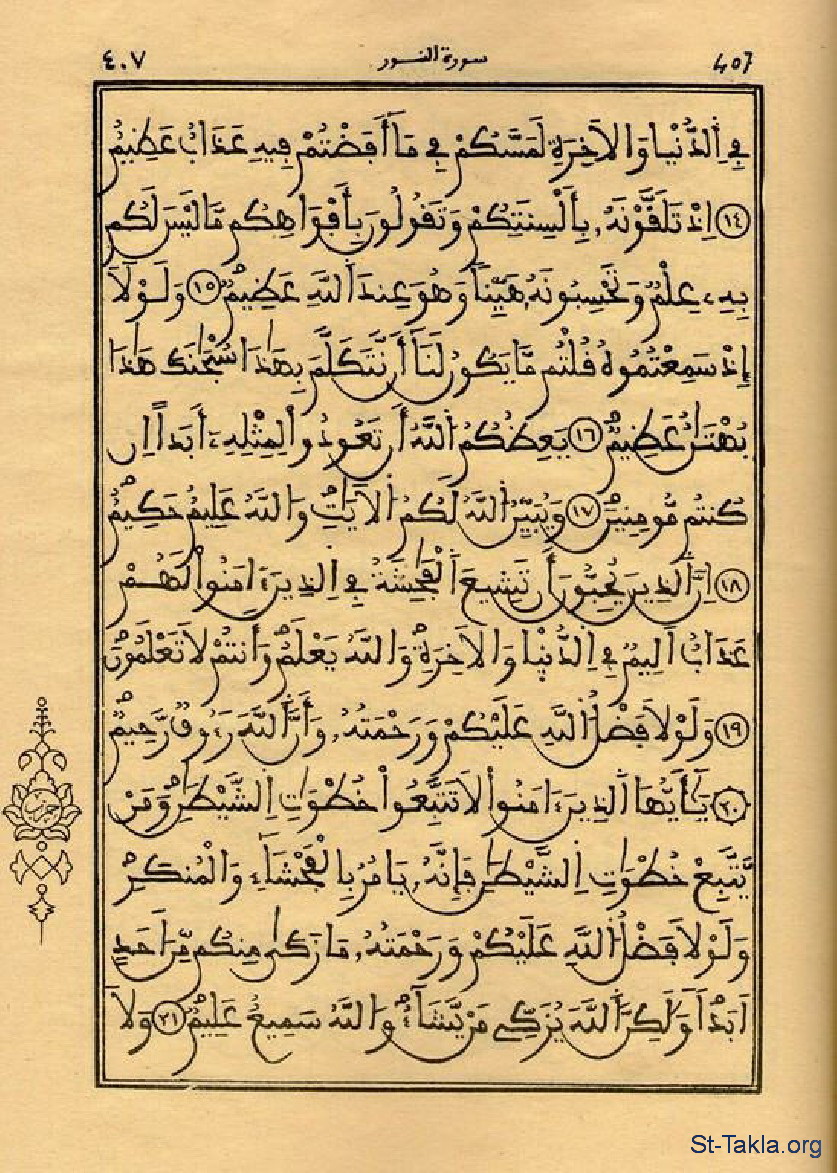 ٤٠٧ سورة النور 407
فِے اِ۬لدُّنْي۪ا وَالَاخِرَةِ لَمَسَّكُمْ فِے مَآ أَفَضْتُمْ فِيهِ عَذَابٌ عَظِيمٌ
١٤ اِذْ تَلَقَّوْنَهُۥ بِأَلْسِنَتِكُمْ وَتَقُولُونَ بِأَفْوَاهِكُم مَّا لَيْسَ لَكُم
بِهِۦ عِلْمٌ وَتَحْسِبُونَهُۥ هَيِّناً وَهُوَ عِندَ اَ۬للَّهِ عَظِيمٌ ١٥ وَلَوْلَآ
إِذْ سَمِعْتُمُوهُ قُلْتُم مَّا يَكُونُ لَنَآ أَن نَّتَكَلَّمَ بِهَٰذَا سُبْحَٰنَكَ هَٰذَا
بُهْتَٰنٌ عَظِيمٌ ١٦ يَعِظُكُمُ اُ۬للَّهُ أَن تَعُودُواْ لِمِثْلِهِۦٓ أَبَداً اِن
كُنتُم مُّومِنِينَ ١٧ وَيُبَيِّنُ اُ۬للَّهُ لَكُمُ اُ۬لَايَٰتِ وَاللَّهُ عَلِيمٌ حَكِيمٌ
١٨ اِنَّ اَ۬لذِينَ يُحِبُّونَ أَن تَشِيعَ اَ۬لْفَٰحِشَةُ فِے اِ۬لذِينَ ءَامَنُواْ لَهُمْ
عَذَابٌ اَلِيمٌ فِے اِ۬لدُّنْي۪ا وَالَاخِرَةِ وَاللَّهُ يَعْلَمُ وَأَنتُمْ لَا تَعْلَمُونَ
١٩ وَلَوْلَا فَضْلُ اُ۬للَّهِ عَلَيْكُمْ وَرَحْمَتُهُۥ وَأَنَّ اَ۬للَّهَ رَءُوفٌ رَّحِيمٌ
٢٠ يَٰٓأَيُّهَا اَ۬لذِينَ ءَامَنُواْ لَا تَتَّبِعُواْ خُطْوَٰتِ اِ۬لشَّيْطَٰنِ وَمَنْ
يَّتَّبِعْ خُطْوَٰتِ اِ۬لشَّيْطَٰنِ فَإِنَّهُۥ يَامُرُ بِالْفَحْشَآءِ وَالْمُنكَرِ
وَلَوْلَا فَضْلُ اُ۬للَّهِ عَلَيْكُمْ وَرَحْمَتُهُۥ مَا زَك۪يٰ مِنكُم مِّنَ اَحَدٍ
اَبَداً وَلَٰكِنَّ اَ۬للَّهَ يُزَكِّے مَنْ يَّشَآءُ وَاللَّهُ سَمِيعٌ عَلِيمٌ ٢١ وَلَا
حزب
St-Takla.org